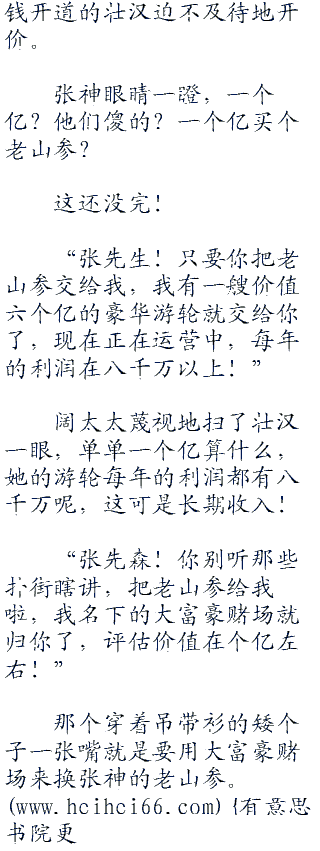 钱开道的壮汉迫不及待地开
价。
张神眼睛一瞪，一个
亿？他们傻的？一个亿买个
老山参？
这还没完！
“张先生！只要你把老
山参交给我，我有一艘价值
六个亿的豪华游轮就交给你
了，现在正在运营中，每年
的利润在八千万以上！”
阔太太蔑视地扫了壮汉
一眼，单单一个亿算什么，
她的游轮每年的利润都有八
千万呢，这可是长期收入！
“张先森！你别听那些
扑街瞎讲，把老山参给我
啦，我名下的大富豪赌场就
归你了，评估价值在个亿左
右！”
那个穿着吊带衫的矮个
子一张嘴就是要用大富豪赌
场来换张神的老山参。
(www.hcihci66.com) {有意思
书院更